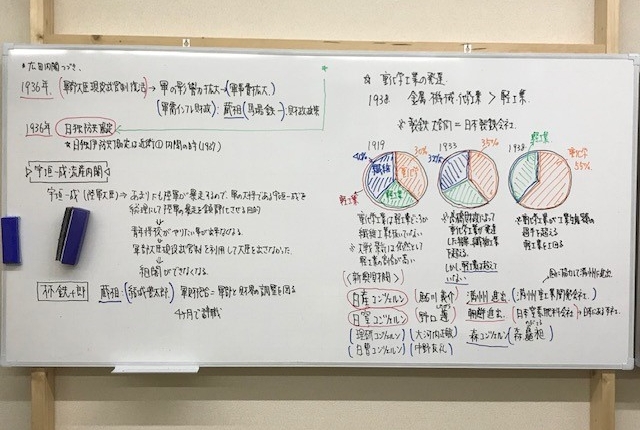 *広田内閣つづき.
1936年. (軍部大臣現役武官制復活) → 軍の影響力拡大 → (軍事費拡大)
(軍需インフレ財政): 蔵相(馬場鍈一):財政政策
1936年 日独防共協定
*日独伊防共協定は近衛①内閣の時(1937)
宇垣一成流産内閣
宇垣一成(陸軍大臣) → あまりにも陸軍が暴走するので、軍の大将である宇垣一成を
総理にして陸軍の暴走を鎮静化させる目的
↓
青年将校がやりたい事が出来なくなる.
↓
軍部大臣現役武官制を利用して大臣を出さなかった.
↓
組閣ができなくなる.
林銑十郎 蔵相:(結城豊太郎) 軍財抱合=軍部と財界の調整を図る
4ヶ月で辞職
☆ 重化学工業の発達
1938. 金属・機械・化学工業 > 軽工業.
※製鉄工合同 = 日本製鉄会社.
1919 1933 1938
40% 30% 32% 35% 軽工業
繊維 重化学 重化学 55%
軽工業 軽工業
重化学工業は軽工業どころか
繊維工業も抜いていない
※大戦景気は依然として
軽工業の割合が高い
※重化学工業が工業生産額の
過半を超え
軽工業を上回る
しかし軽工業は超えて
いない
(<新興財閥>)
日産コンツェルン (鮎川義介) 満州進出 (満州重工業開発会社)
日窒コンツェルン (野口遵) 朝鮮進出 (日本窒素肥料会社)
(理研コンツェルン)(大河内正敏) 森コンツェルン(森矗昶)
(日曹コンツェルン)(中野友礼)